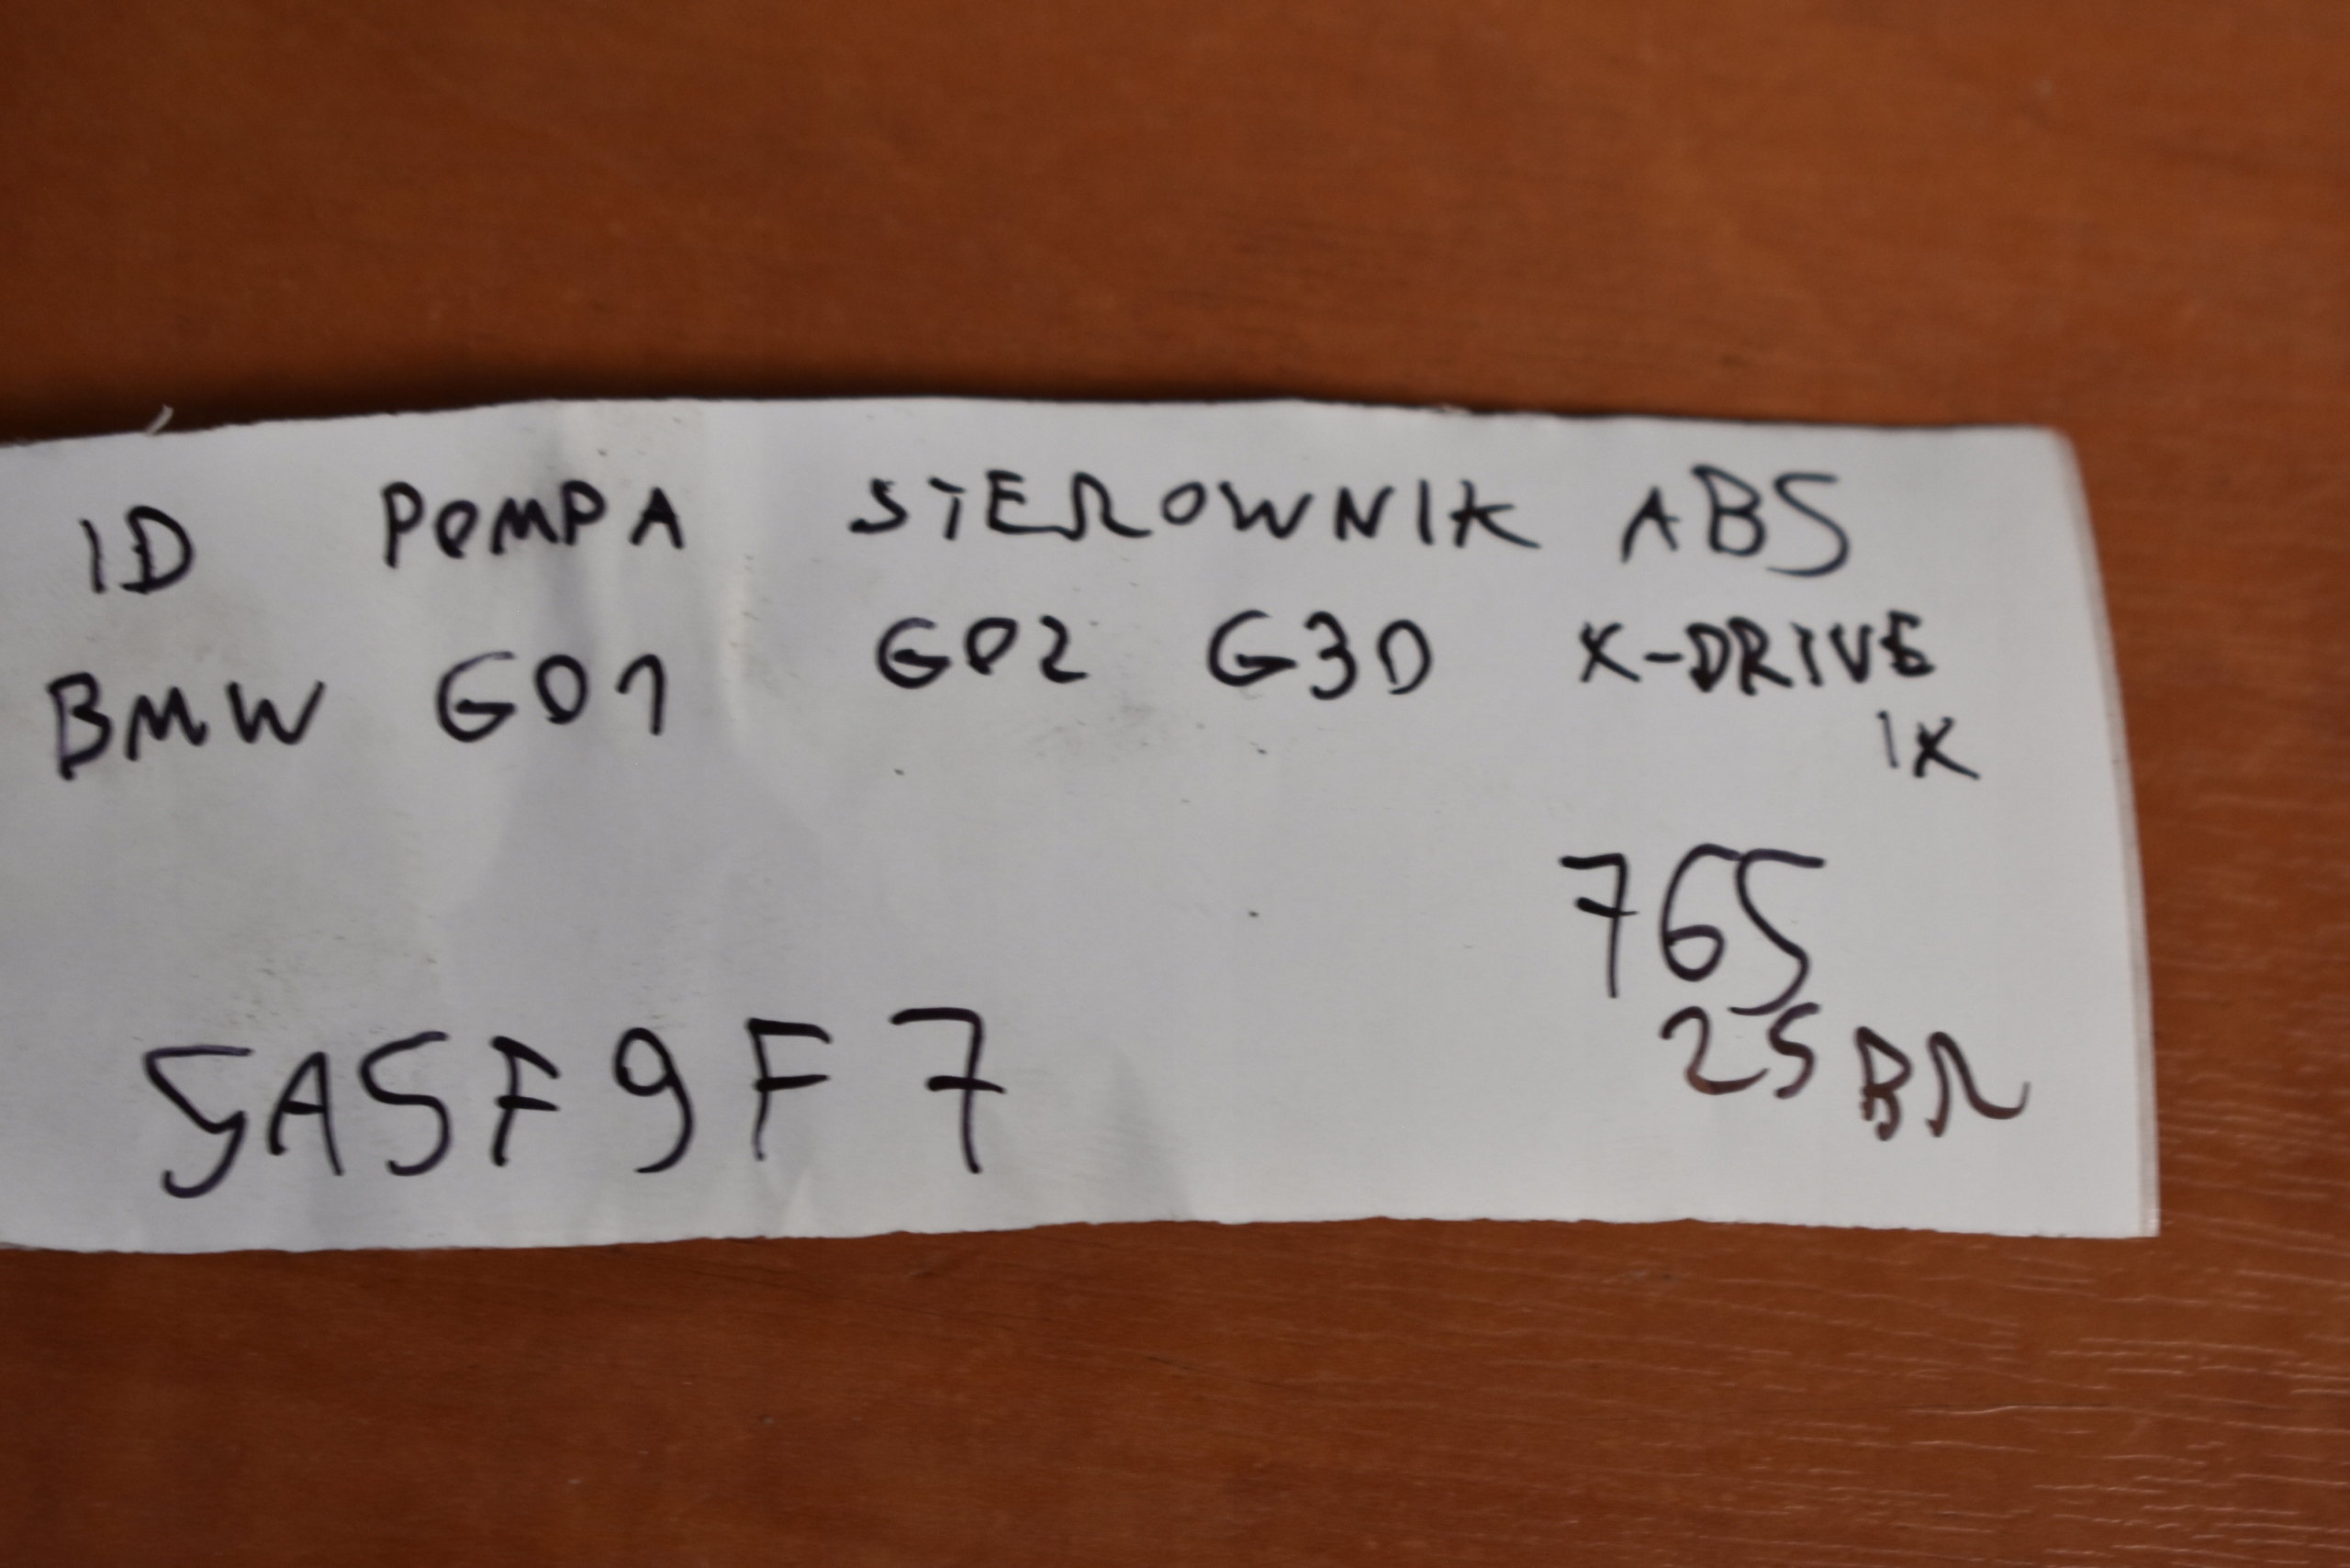 ID POMPA STEROWNIK ABS
BMW G01 G02 G30 X-DRIVE
1X
765
25 BR
5A5F9F7